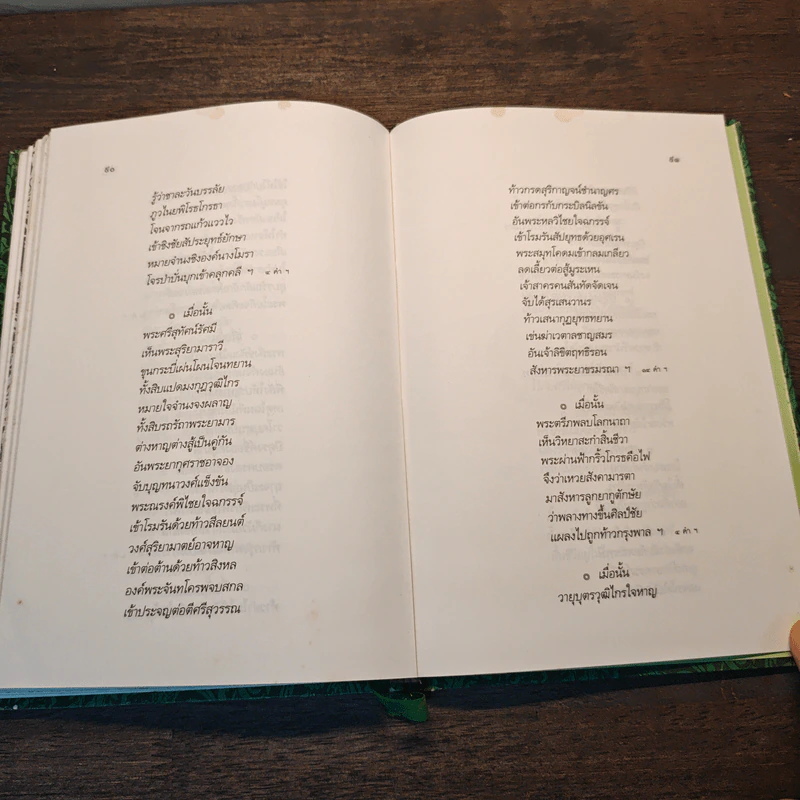 ๕๐
รู้ว่าชาละวันบรรลัย
ภูวไนยพิโรธโกรธา
โจนจากรถแก้วแววไว
เข้าชิงชัยสัประยุทธ์ยักษา
หมายจำนงชิงองค์นางโมรา
โจรป่าปั่นบุกเข้าคลุกคลี ฯ ๔ คำ ฯ
๏ เมื่อนั้น
พระศรีสุทัศน์รัศมี
เห็นพระสุริยามาราวี
ขุนกระบี่เผ่นโผนโจนทยาน
ทั้งสิบแปดมงกุฎวุฒิไกร
หมายใจจำนงจงผลาญ
ทั้งสิบรถรัถาพระยามาร
ต่างหาญต่างสู้เป็นคู่กัน
อันพระยากุศราชอาจอง
จับบุญทนาวงศ์แข็งขัน
พระณรงค์พิไชยใจฉกรรจ์
เข้าโรมรันด้วยท้าวสีลยนต์
วงศ์สุริยามาตย์อาจหาญ
เข้าต่อต้านด้วยท้าวสิงหล
องค์พระจันทโครพจบสกล
เข้าประจญต่อตีศรีสุวรรณ
๕๑
ท้าวกรดสุริกาญจน์ชำนาญศร
เข้าต่อกรกับกระบิลนิลขัน
อันพระหลวิไชยใจฉกรรจ์
เข้าโรมรันสัปยุทธด้วยอุศเรน
พระสมุทโคดมเข้ากลมเกลียว
ลดเลี้ยวต่อสู้มูระเหน
เจ้าสาครคนสันทัดจัดเจน
จับได้สุรเสนวานร
ท้าวเสนากุฎยุทธทยาน
เข่นฆ่าเวตาลชาญสมร
อันเจ้าลิขิตฤทธิรอน
สังหารพระยาขรมรณา ฯ ๑๔ คำ ฯ
๏ เมื่อนั้น
พระตรีภพลบโลกนาถา
เห็นวิทยาสะกำสิ้นชีวา
พระผ่านฟ้ากริ้วโกรธคือไฟ
จึงว่าเหวยสังคามารตา
มาสังหารลูกยากูตักษัย
ว่าพลางทางขึ้นศิลป์ชัย
แผลงไปถูกท้าวกรุงพาล ฯ ๔ คำ ฯ
๏ เมื่อนั้น
วายุบุตรวุฒิไกรใจหาญ